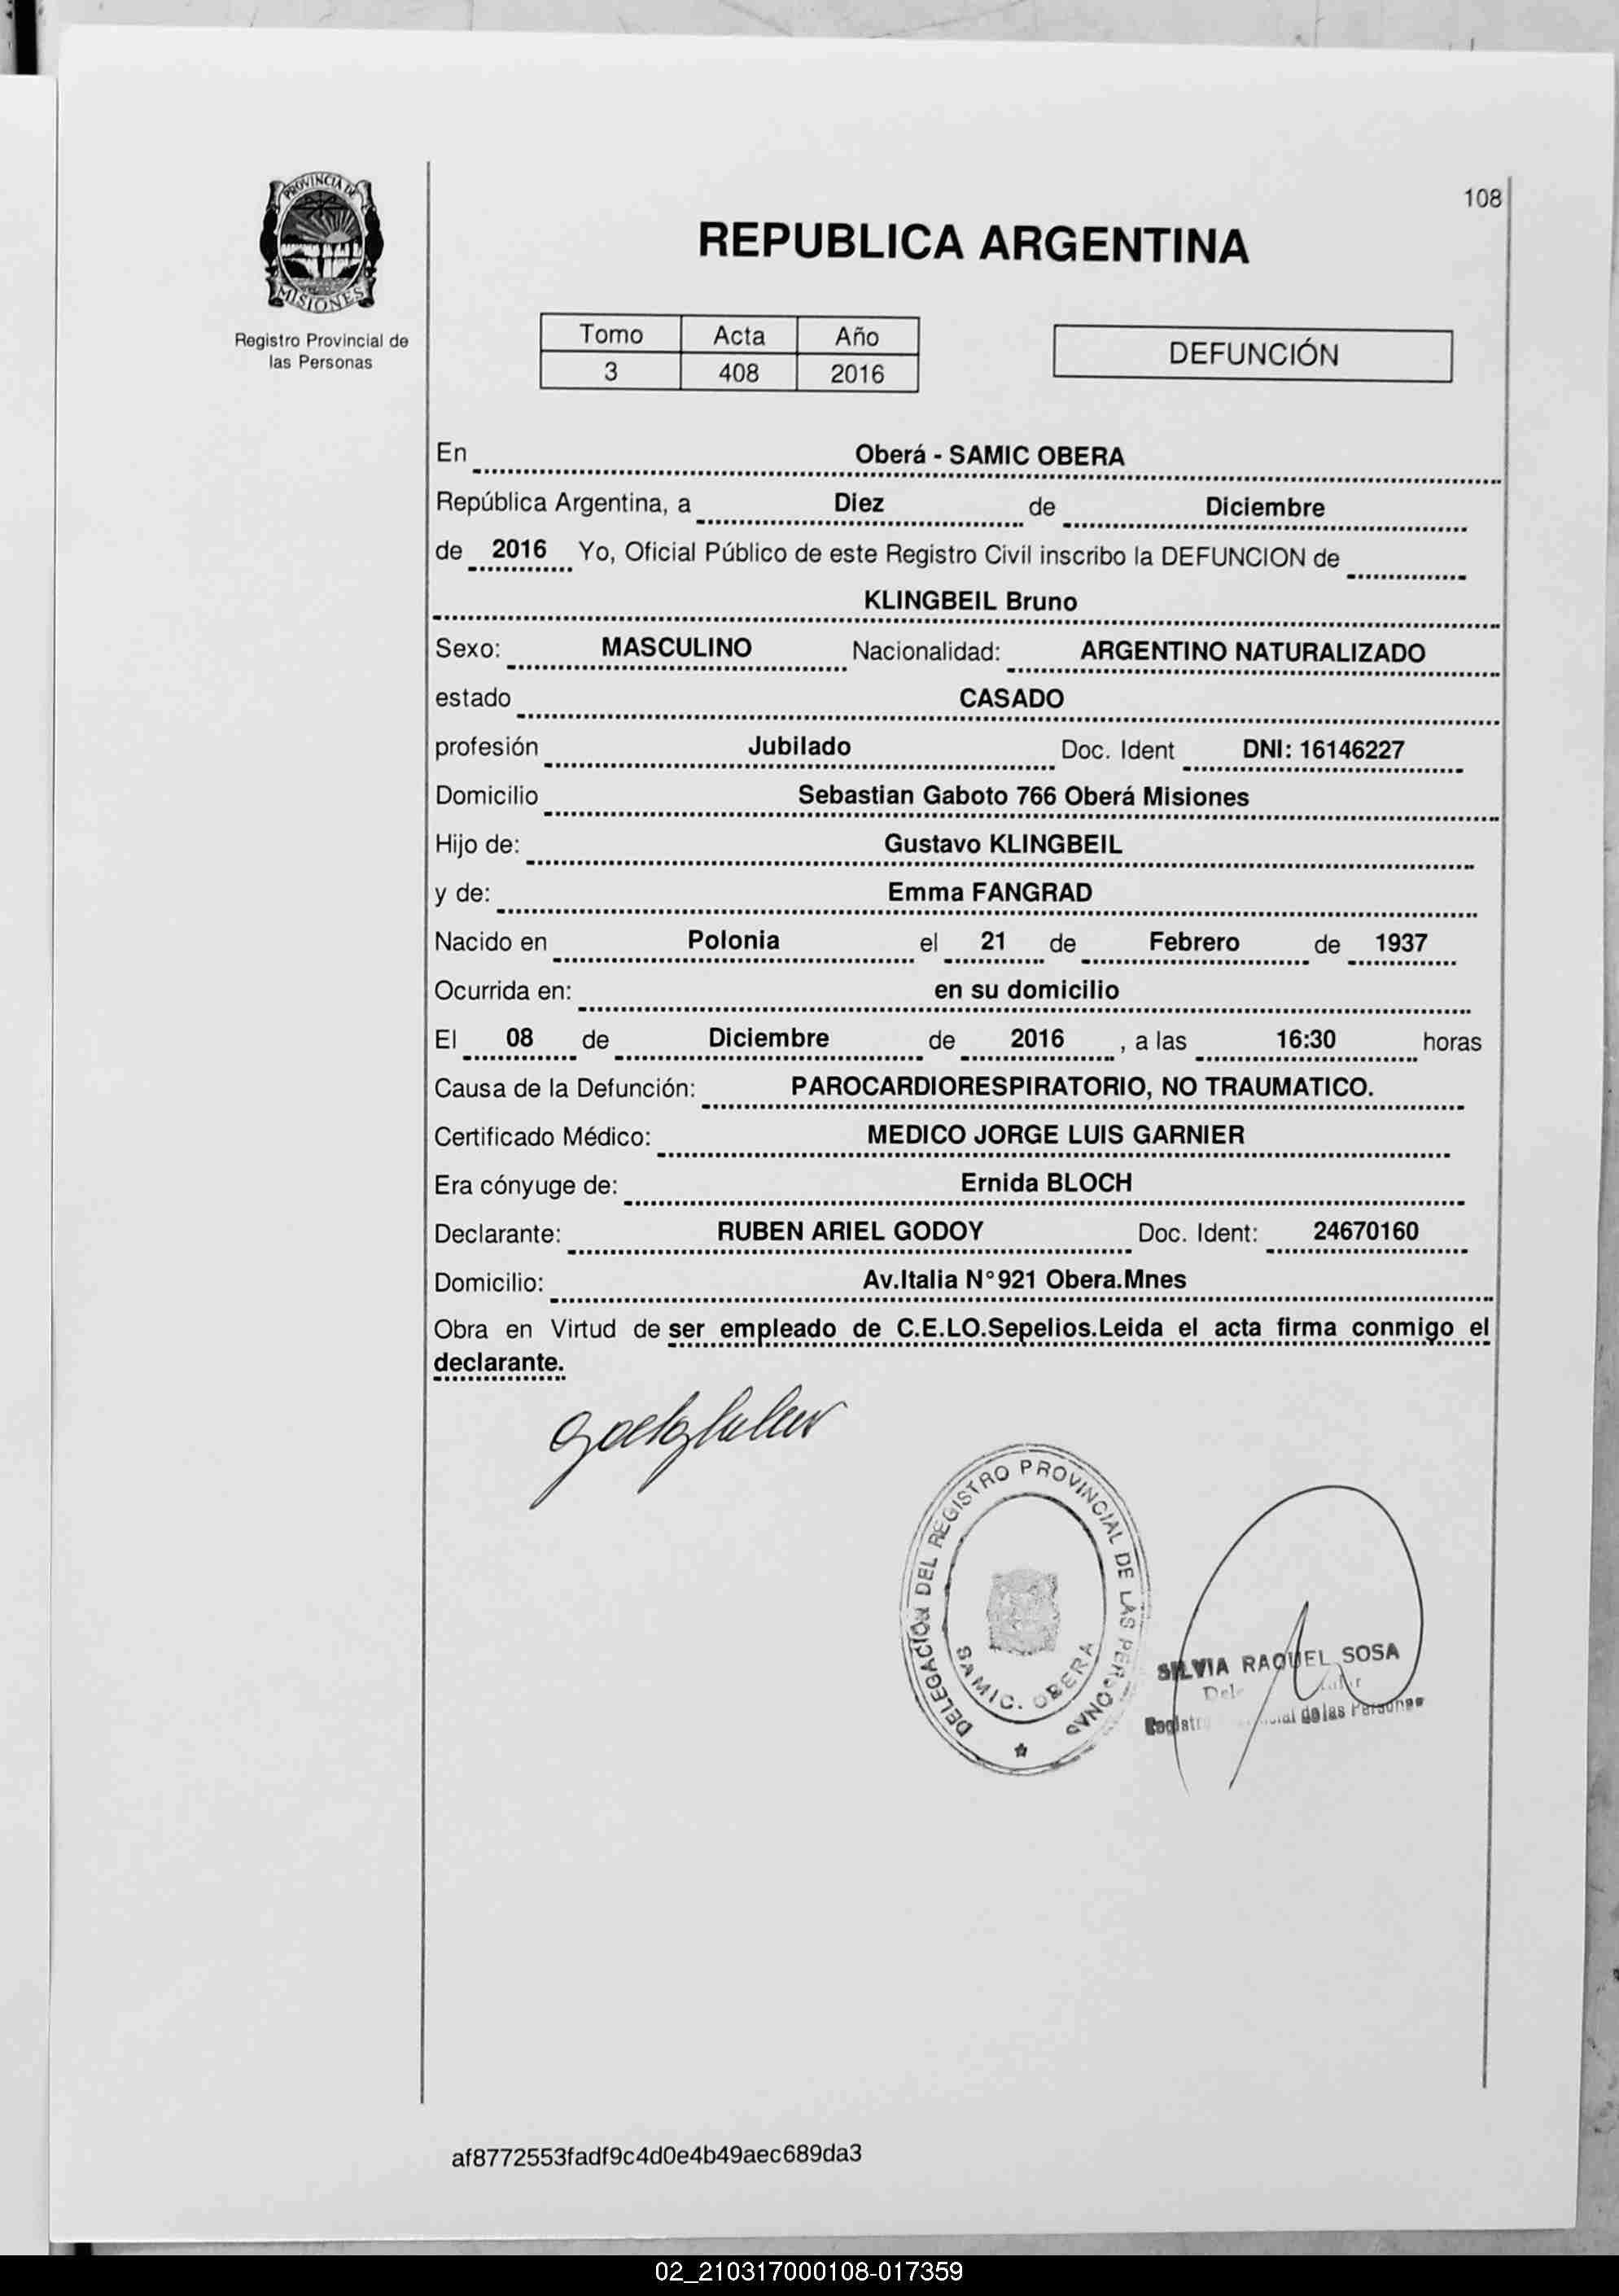 108
PROVINCIA DE
MISIONES
Registro Provincial de
las Personas
REPUBLICA ARGENTINA
Tomo Acta Año
3 408 2016
DEFUNCIÓN
En Oberá - SAMIC OBERA
República Argentina, a Diez de Diciembre
de 2016 Yo, Oficial Público de este Registro Civil inscribo la DEFUNCION de
KLINGBEIL Bruno
Sexo: MASCULINO Nacionalidad: ARGENTINO NATURALIZADO
estado CASADO
profesión Jubilado Doc. Ident DNI: 16146227
Domicilio Sebastian Gaboto 766 Oberá Misiones
Hijo de: Gustavo KLINGBEIL
y de: Emma FANGRAD
Nacido en Polonia el 21 de Febrero de 1937
Ocurrida en: en su domicilio
El 08 de Diciembre de 2016 , a las 16:30 horas
Causa de la Defunción: PAROCARDIORESPIRATORIO, NO TRAUMATICO.
Certificado Médico: MEDICO JORGE LUIS GARNIER
Era cónyuge de: Ernida BLOCH
Declarante: RUBEN ARIEL GODOY Doc. Ident: 24670160
Domicilio: Av.Italia N°921 Obera.Mnes
Obra en Virtud de ser empleado de C.E.LO.Sepelios.Leida el acta firma conmigo el
declarante.
DELEGACION DEL REGISTRO PROVINCIAL DE LAS PERSONAS
SAMIC. OBERA
SILVIA RAQUEL SOSA
de las Personas
af8772553fadf9c4d0e4b49aec689da3
02_210317000108-017359